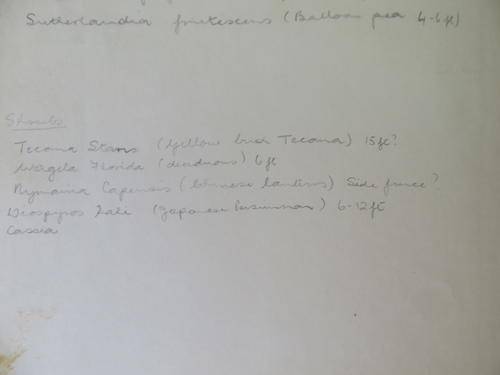 Sutherlandia frutescens (Balloon pea 4-6ft)
Shrubs
Tecoma Stans (Yellow bush Tecoma) 15ft?
Florida (deciduous) 6ft
Nymania Capensis (Chinese lanterns) Side fence?
Diospyros Kaki (Japanese Persimmon) 6-12ft
Cassia